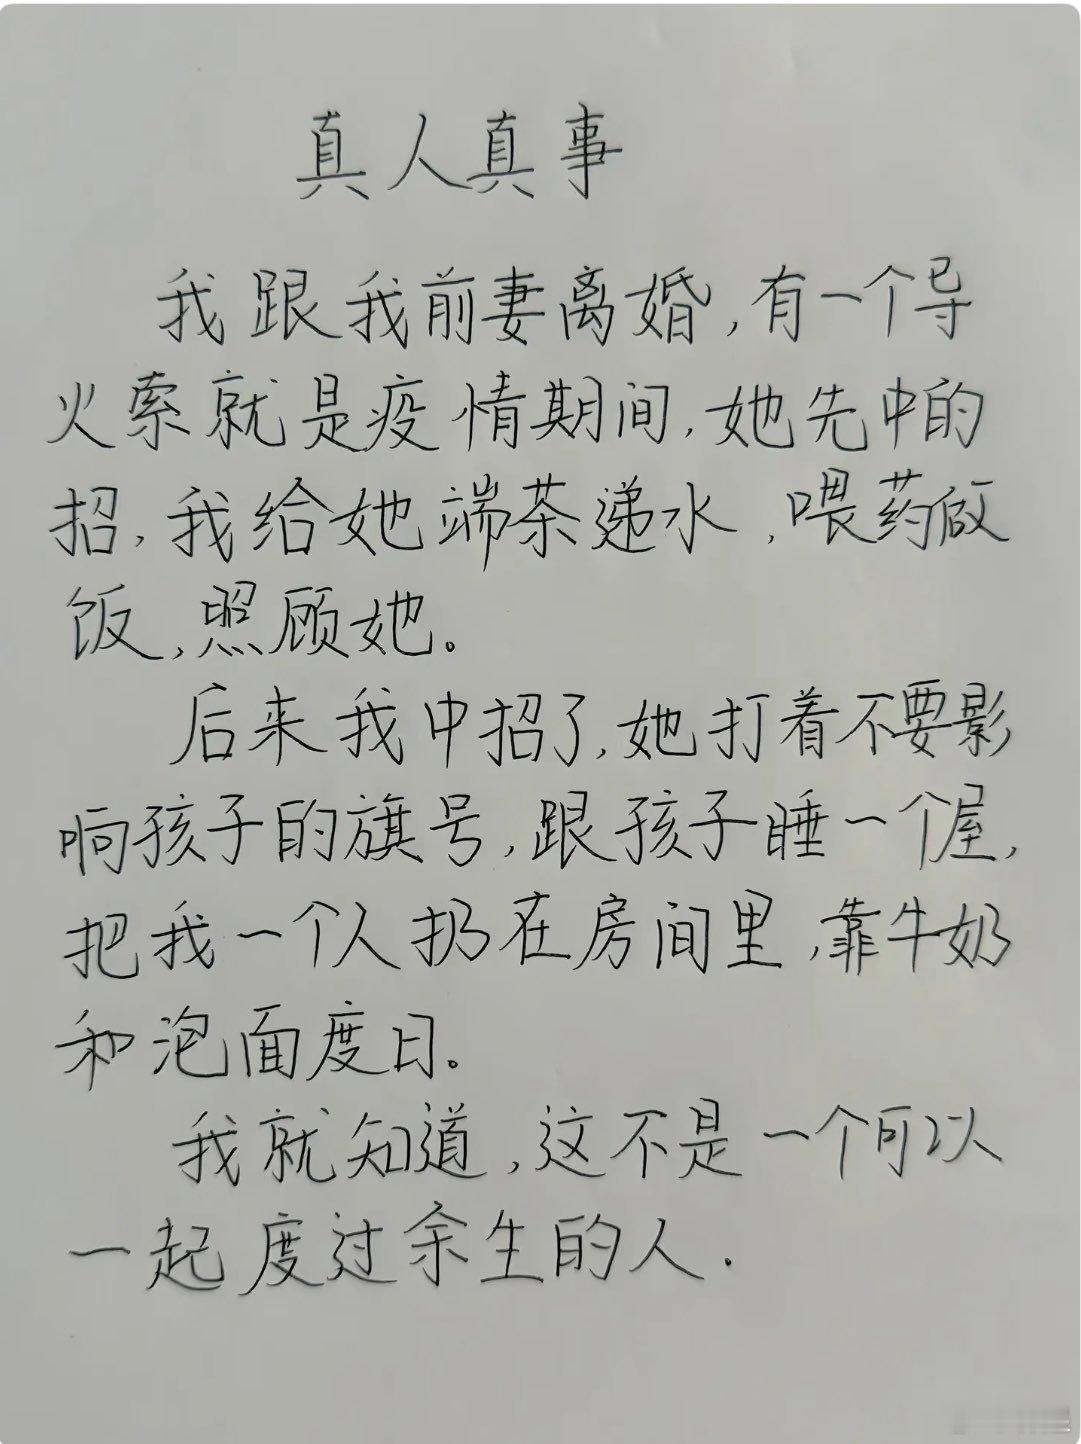 真人真事
我跟我前妻离婚,有一个导
火索就是疫情期间,她先中的
招,我给她端茶递水,喂药做
饭,照顾她。
后来我中招了,她打着不要影
响孩子的旗号,跟孩子睡一个屋,
把我一个人扔在房间里,靠牛奶
和泡面度日。
我就知道,这不是一个可以
一起度过余生的人.